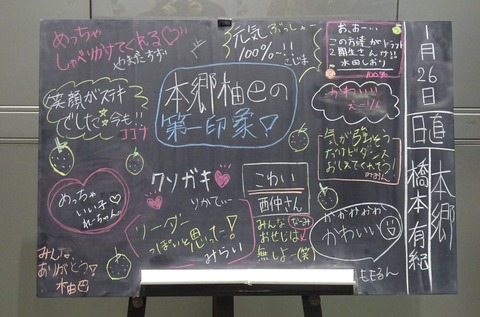 めっちゃ
しゃべりかけてくれる♡
元気
100%~!!
こじま
おぉー...
2期生さん!?
水田しおり
100%
1月26日
日直
本郷
橋本有紀
笑顔がステキ
でした。今も!!
ココナ
本郷柚巴の
第一印象!
かわいい
気が強そう
だけどダンス
おしえてくれそう!
クソガキ
りかてぃー
こわい
西仲さん
みんな
おせじは
無しよー(笑)
めっちゃ
いい子
れーちゃん
リーダー
っぽいと思ったー!
みらい
かわいい
ももるん
みんな
ありがとう!
柚巴